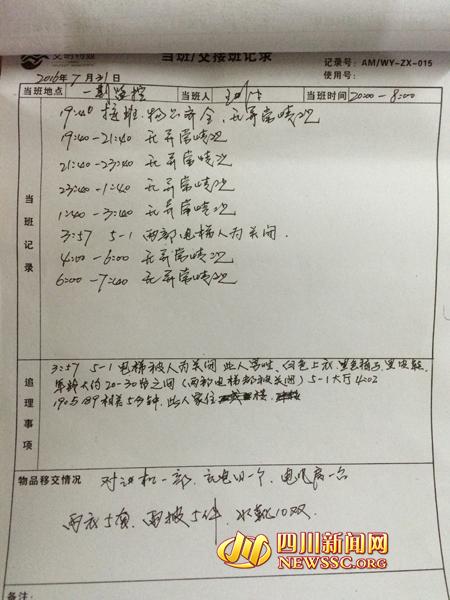 当班/交接班记录
记录号：AM/WY-ZX-015
使用号：
2016年7月31日
当班地点 一期监控 当班人 当班时间 20:00-8:00
当班记录
19:40 接班.物品齐全,无异常情况
19:40-21:40 无异常情况
21:40-23:40 无异常情况
23:40-1:40 无异常情况
1:40-3:40 无异常情况
3:57 5-1 两部电梯人为关闭.
4:00-6:00 无异常情况
6:00-7:40 无异常情况
追理事项
3:57 5-1电梯被人为关闭 此人男性、白色上衣 黑色裤子 黑皮鞋.
年龄大约20-30岁之间(两部电梯都被关闭)5-1大厅4:02
相差5分钟.此人家住 楼.
物品移交情况 对讲机一部.充电口一个,电风扇一台
雨衣5项.雨披5件,水靴10双.
四川新闻网
NEWSSC.ORG
备注：